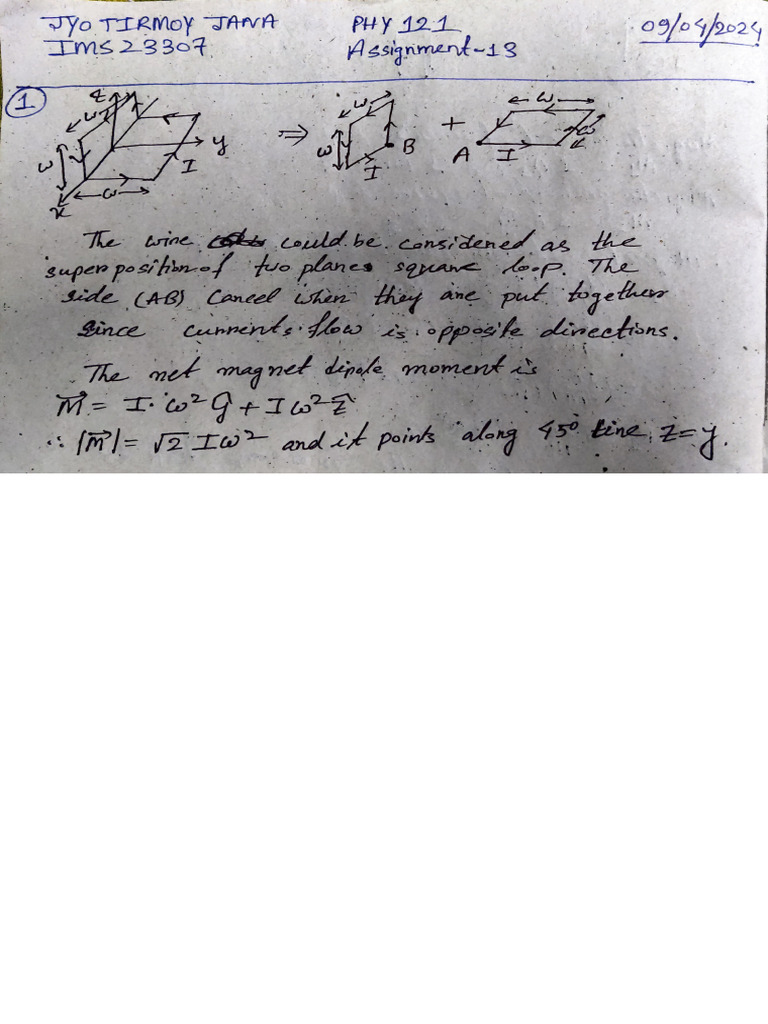 JYOTIRMOY JANA PHY 121 09/04/2024
IMS23307 Assignment-13
1
z ω ω ω x y I ⇒ ω ω I B + A I ω ω
The wire could be considered as the
superposition of two planes square loop. The
side (AB) Cancel when they are put together
since currents flow is opposite directions.
The net magnet dipole moment is
M⃗ = I·ω² ŷ + Iω² ẑ
∴ |m⃗| = √2 Iω² and it points along 45° line, z=y.